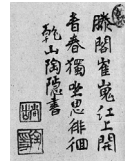 滕閣崔嵬江上開
青春獨坐思徘徊
乾山陶隱書